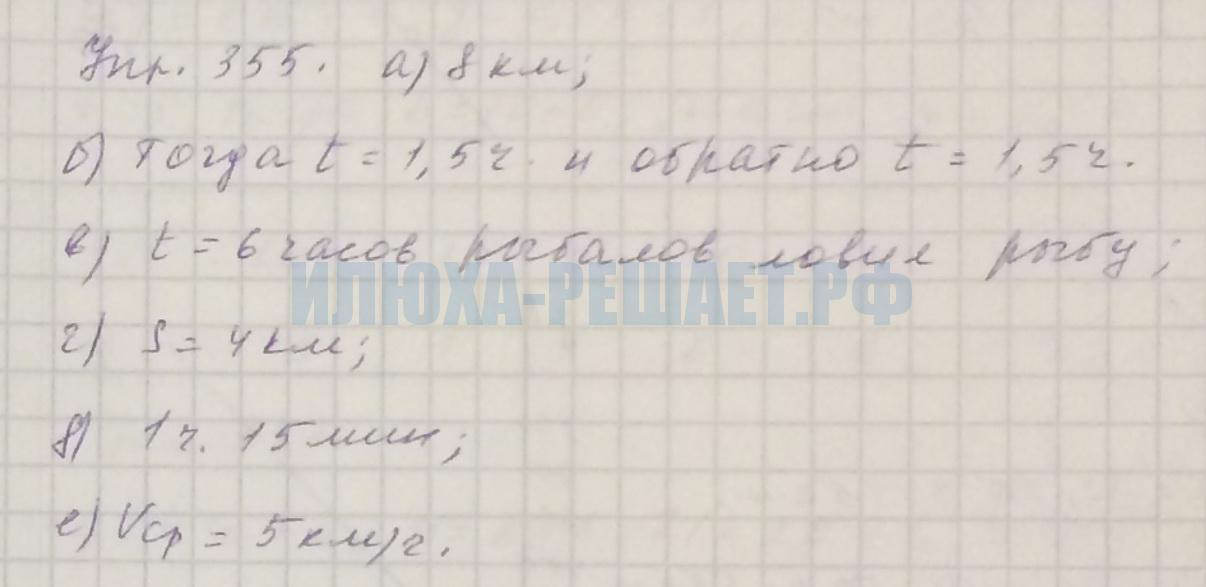 Упр. 355. а) 8 км;
б) Тогда t = 1,5 ч. и обратно t = 1,5 ч.
в) t = 6 часов рыболов ловил рыбу;
ИЛЮХА-РЕШАЕТ.РФ
г) S = 4 км;
д) 1 ч. 15 мин;
е) Vср = 5 км/ч.